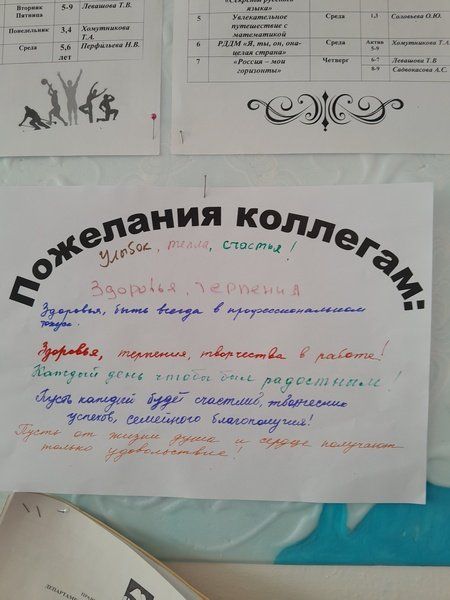 Вторник 5-9 Левашова Т.В.
Пятница
Понедельник 3,4 Хомутникова Т.А.
Среда 5,6 Перфильева Н.В.
лет
языка»
5 Увлекательное путешествие с математикой Среда 1,3 Соловьева О.Ю.
6 РДДМ «Я, ты, он, она- целая страна» Среда Актив 5-9 Хомутникова Т.А.
7 «Россия – мои горизонты» Четверг 6-7 Левашова Т.В
8-9 Садвокасова А.С.
Пожелания коллегам:
Улыбок, тепла, счастья!
Здоровья, терпения
Здоровья, быть всегда в профессиональном
тонусе.
Здоровья, терпения, творчества в работе!
Каждый день чтобы был радостным!
Пусть каждый будет счастлив, творческих
успехов, семейного благополучия!
Пусть от жизни душа и сердце получают
только удовольствие!
ДЕПАРТАМЕ